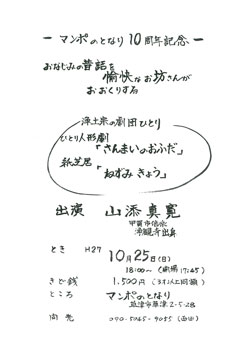 ー マンポのとなり 10周年記念 ー
おなじみの昔話を
愉快なお坊さんが
おおくりする
浄土宗の劇団ひとり
ひとり人形劇
「さんまいのおふだ」
紙芝居
「ねずみきょう」
出演 山添真寛
甲賀市信楽
浄観寺出身
とき H27 10月25日(日)
18:00〜 (開場17:45)
きど銭 1,500円
ところ マンポのとなり
草津市草津2-5-28
問先